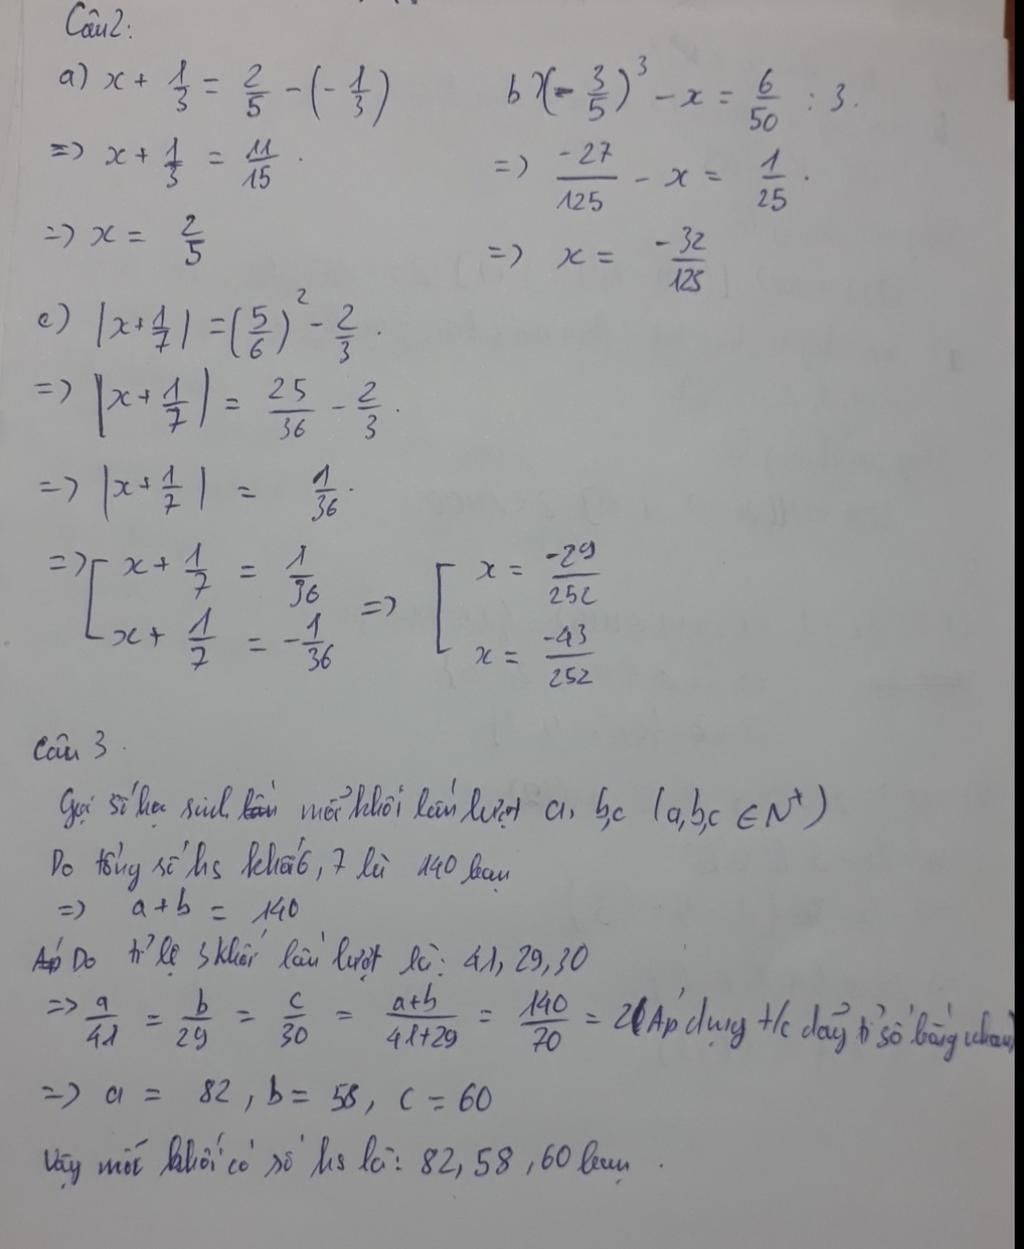 Câu 2:
a) x + 1/3 = 2/5 - (-1/3)
=> x + 1/3 = 11/15.
=> x = 2/5
b) (-3/5)^3 - x = 6/50 : 3.
=> -27/125 - x = 1/25.
=> x = -32/125
c) |x + 1/7| = (5/6)^2 - 2/3.
=> |x + 1/7| = 25/36 - 2/3.
=> |x + 1/7| = 1/36.
=> [ x + 1/7 = 1/36 => [ x = -29/252
x + 1/7 = -1/36 x = -43/252
Câu 3.
Gọi số học sinh mỗi khối lần lượt a, b, c (a,b,c ∈ N+)
Do tổng số hs khối 6, 7 là 140 bạn
=> a + b = 140
Do tỉ lệ 3 khối lần lượt là: 41, 29, 30
=> a/41 = b/29 = c/30 = (a+b)/(41+29) = 140/70 = 2 (Áp dụng t/c dãy tỉ số bằng nhau)
=> a = 82, b = 58, c = 60
Vậy mỗi khối có số hs là: 82, 58, 60 bạn.